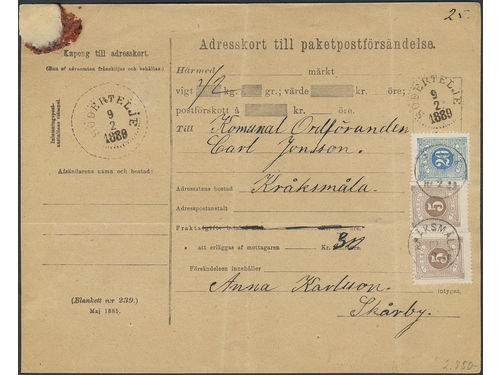 25.
Kupong till adresskort.
(Kan af adressaten frånskiljas och behållas.)
Inlemningspost-
anstaltens stämpel.
SÖDERTELJE
9
2
1889
Afsändarens namn och bostad:
(Blankett nr 239.)
Maj 1885.
Adresskort till paketpostförsändelse.
Härmed 1/2 märkt
vigt kg. gr.; värde kr. öre;
postförskott å kr. öre.
SÖDERTELJE
9
2
1889
Till Komunal Ordföranden
Carl Jonsson.
Adressatens bostad: Kråksmåla.
Adresspostanstalt
Fraktafgift öre.
20
5
5
att erläggas af mottagaren Kr. 30
Försändelsen innehåller
Anna Karlsson.
Skårby.
2.850-